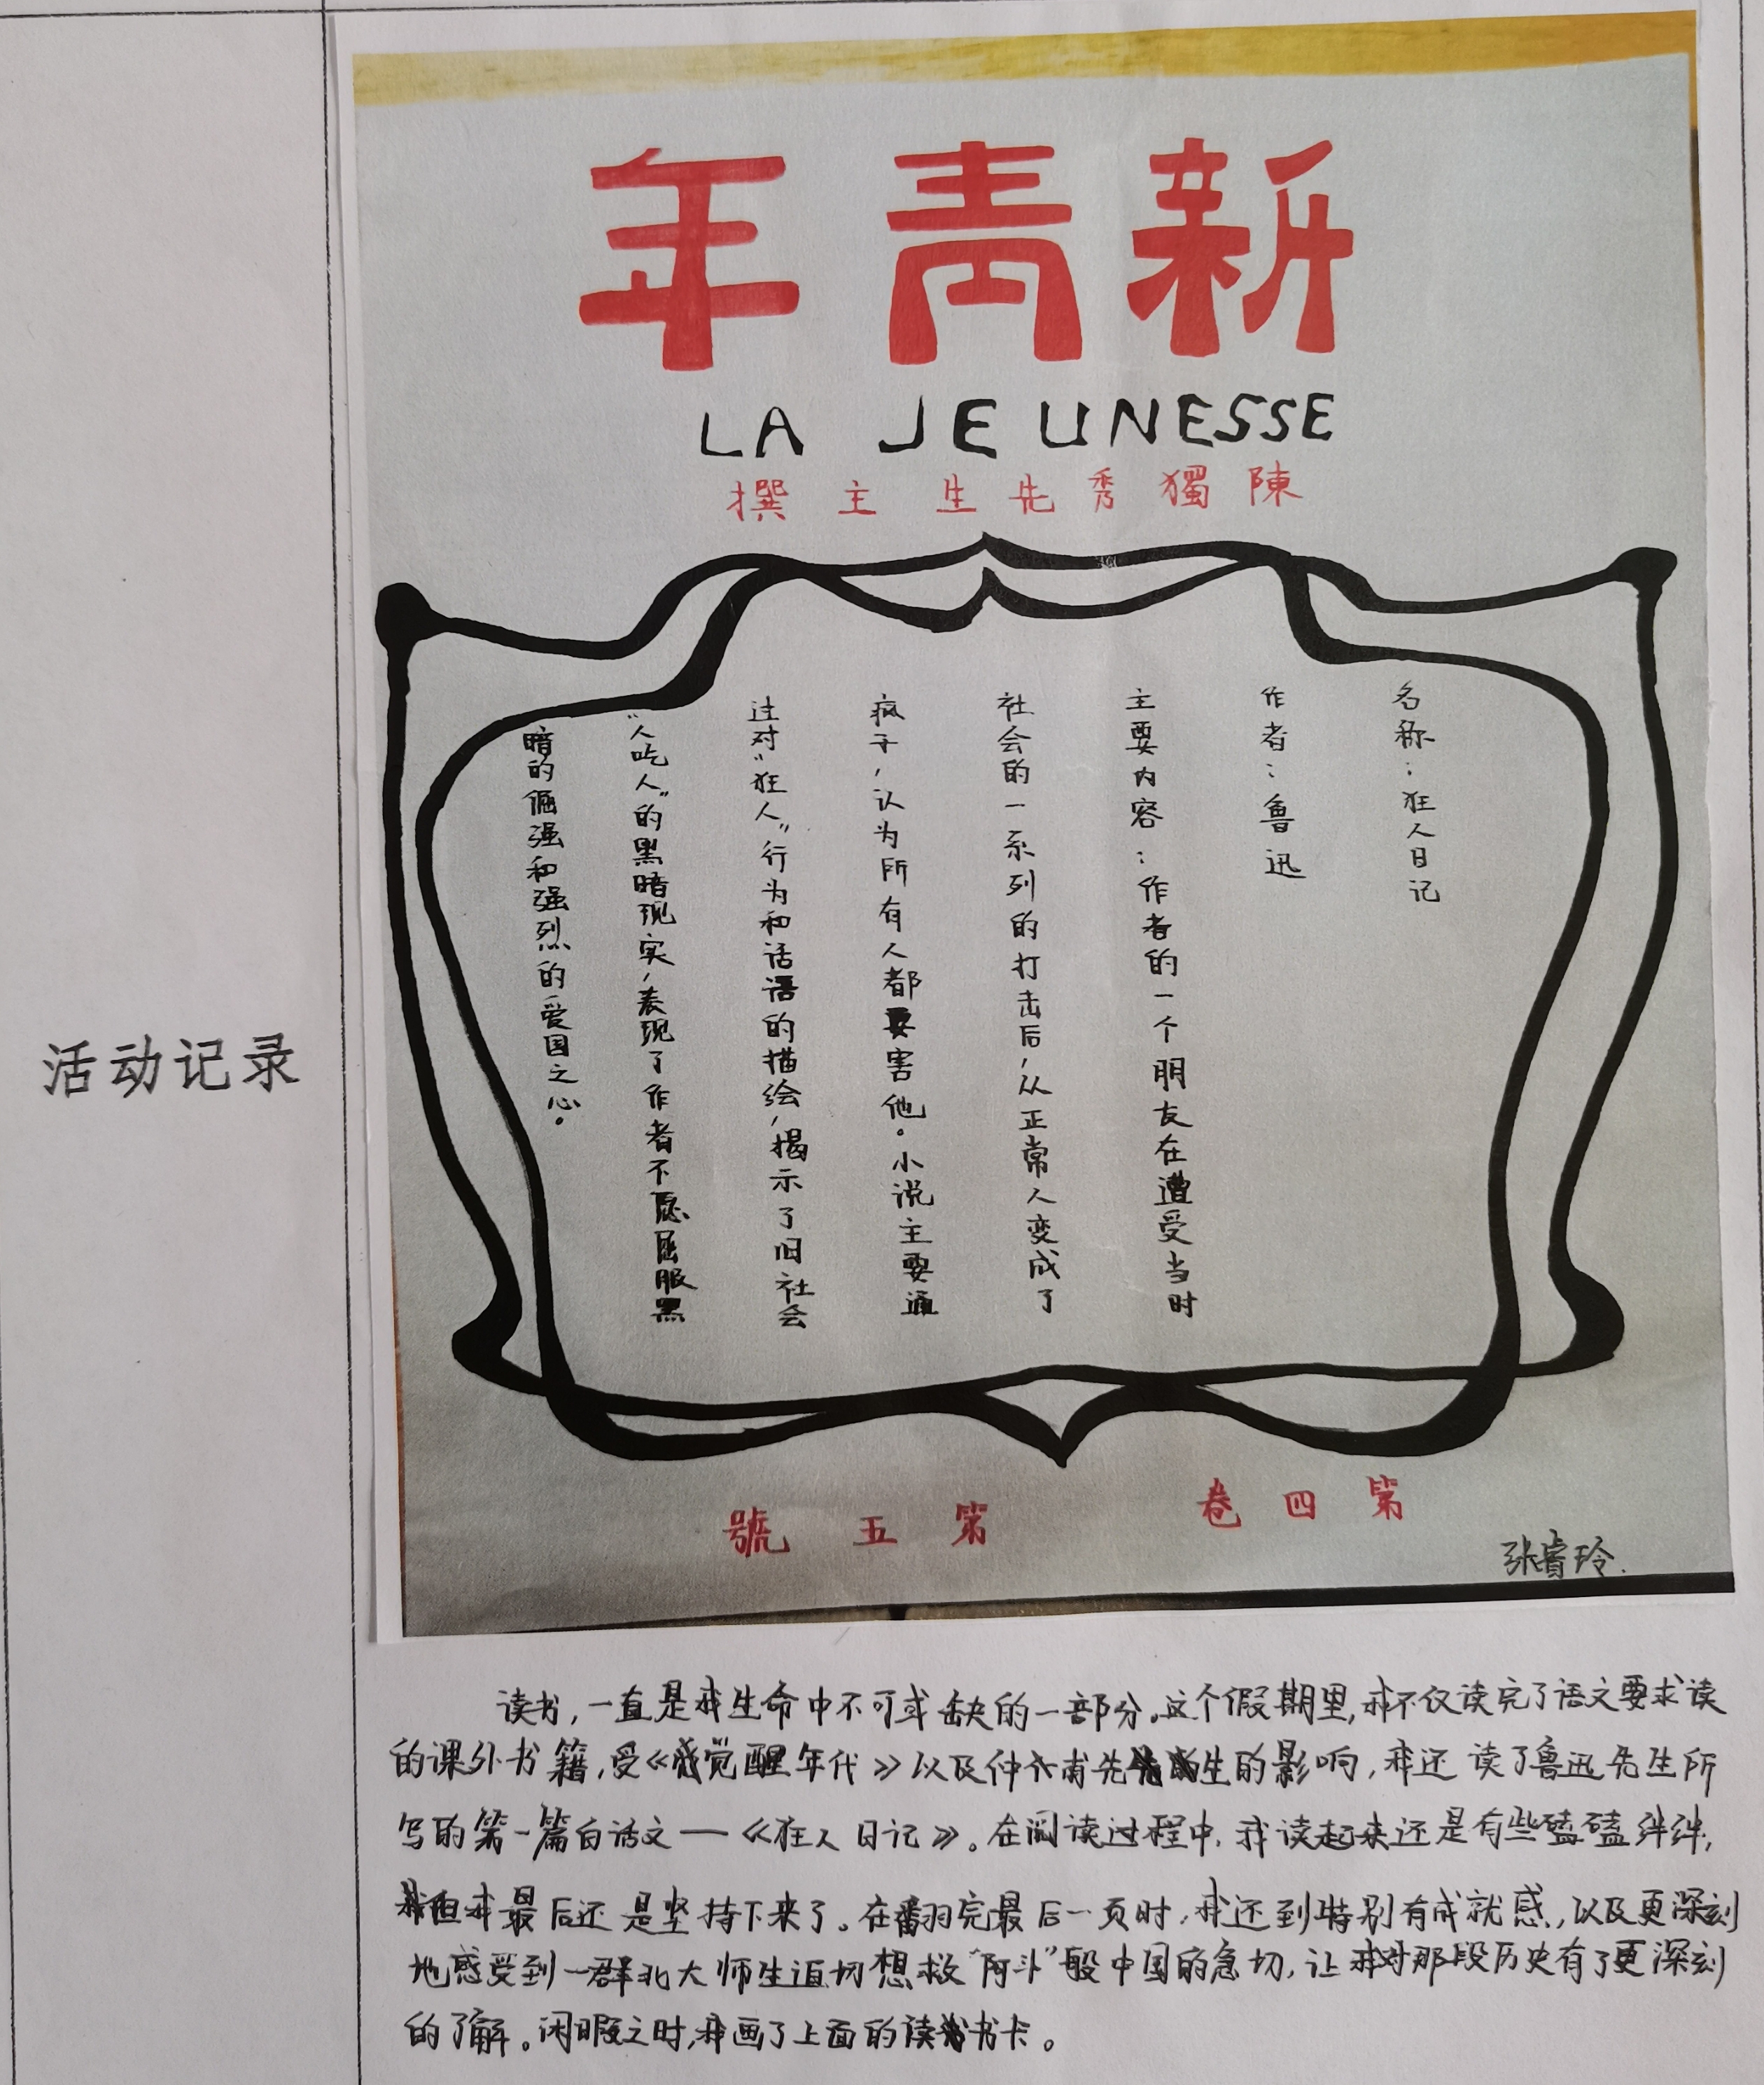 活动记录
新青年
LA JEUNESSE
陳獨秀先生主撰
名称：狂人日记
作者：鲁迅
主要内容：作者的一个朋友在遭受当时
社会的一系列的打击后，从正常人变成了
疯子，认为所有人都要害他。小说主要通
过对“狂人”行为和话语的描绘，揭示了旧社会
“人吃人”的黑暗现实，表现了作者不愿屈服黑
暗的倔强和强烈的爱国之心。
第四卷 第五號
张睿玲.
读书，一直是我生命中不可或缺的一部分。这个假期里，我不仅读完了语文要求读
的课外书籍，受《觉醒年代》以及仲甫先生的影响，我还读了鲁迅先生所
写的第一篇白话文—《狂人日记》。在阅读过程中，我读起来还是有些磕磕绊绊，
但我最后还是坚持下来了。在翻完最后一页时，我还到特别有成就感，以及更深刻
地感受到一群北大师生迫切想救“阿斗”般中国的急切，让我对那段历史有了更深刻
的了解。闲暇之时，我画了上面的读书卡。